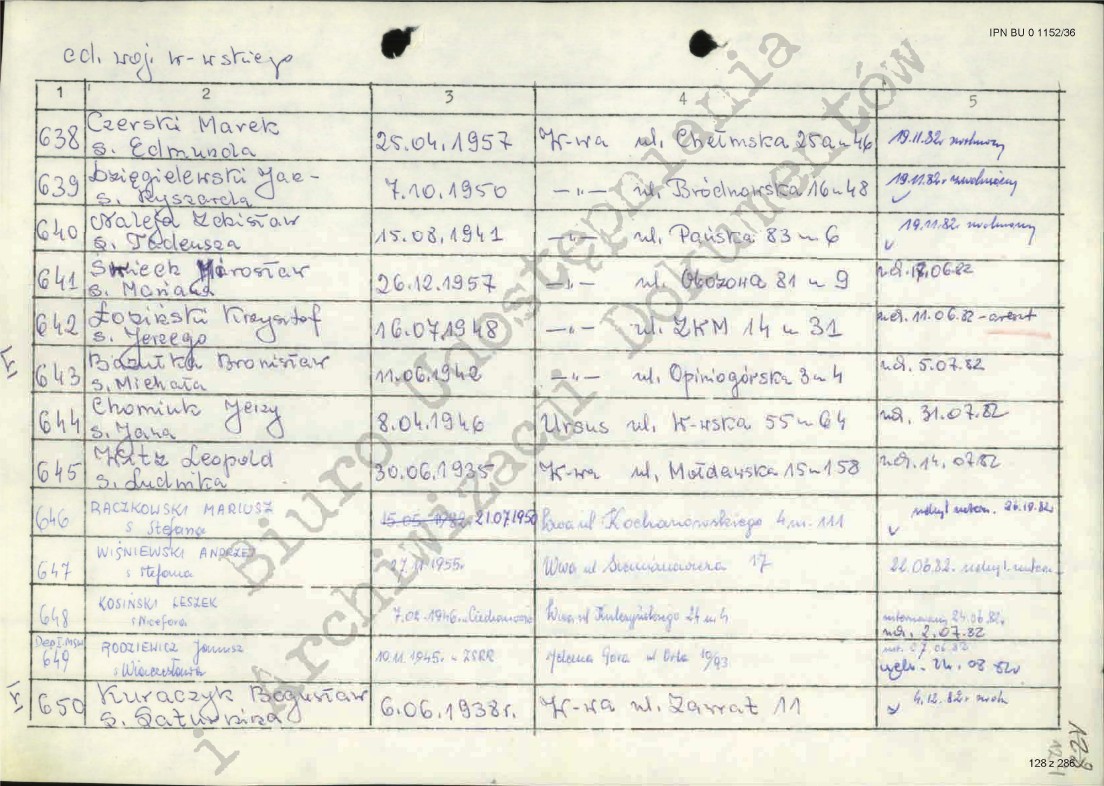 IPN BU 0 1152/36
cd. woj. W-wskiego
1 2 3 4 5
638 Czerski Marek
s. Edmunda 25.04.1957 W-wa ul. Chełmska 25a m 46 19.11.82r zwolniony
639 Dzięgielewski Jac-
s. Ryszarda 7.10.1950 —„— ul. Bródnowska 16 m 48 19.11.82r zwolniony
640 Nalej Zdzisław
s. Tadeusza 15.08.1941 —„— ul. Pańska 83 m 6 19.11.82r. zwolniony
641 Mirosław
s. Mariana 26.12.1957 —„— ul. Obozowa 81 m 9 .06.82
642 Łoziński Krzysztof
s. Jerzego 16.07.1948 —„— ul. ZKM 14 m 31 uch. 11.06.82 - areszt
643 Bazułka Bronisław
s. Michała 11.06.1942 —„— ul. Opinogórska 3 m 4 uch. 5.07.82
644 Chomiuk Jerzy
s. Jana 8.04.1946 Ursus ul. W-wska 55 m 64 uch. 31.07.82
645 Witz Leopold
s. Ludwika 30.06.1935 W-wa ul. Mołdawska 15 m 158 uch. 14.07.82
646 RACZKOWSKI MARIUSZ
s Stefana 15.05.1982. 21.071950 ul Kochanowskiego 4 m. 111 uchyl. intern. 26.10.82
647 WIŚNIEWSKI ANDRZEJ
s Stefana 1955r. Wwa ul 17 22.06.82. uchyl. intern
648 KOSIŃSKI LESZEK
s Nicefora 7.02.1946. Ciechanowie Wwa ul 24 m 4 internowany 24.06.82r.
uch. 2.07.82
Dep I MSW
649 RODZIEWICZ Janusz
s Wiaczesława 10.11.1945. w ZSRR Jelenia Góra ul Orla 10/93 int. 07.06.82
uchr. 24.08.82r
650 Kuraczyk Bogusław
s. Saturnina 6.06.1938r. W-wa ul. Zawrat 11 4.12.82r zwoln
Biuro Udostępniania
i Archiwizacji Dokumentów
129
128 z 286